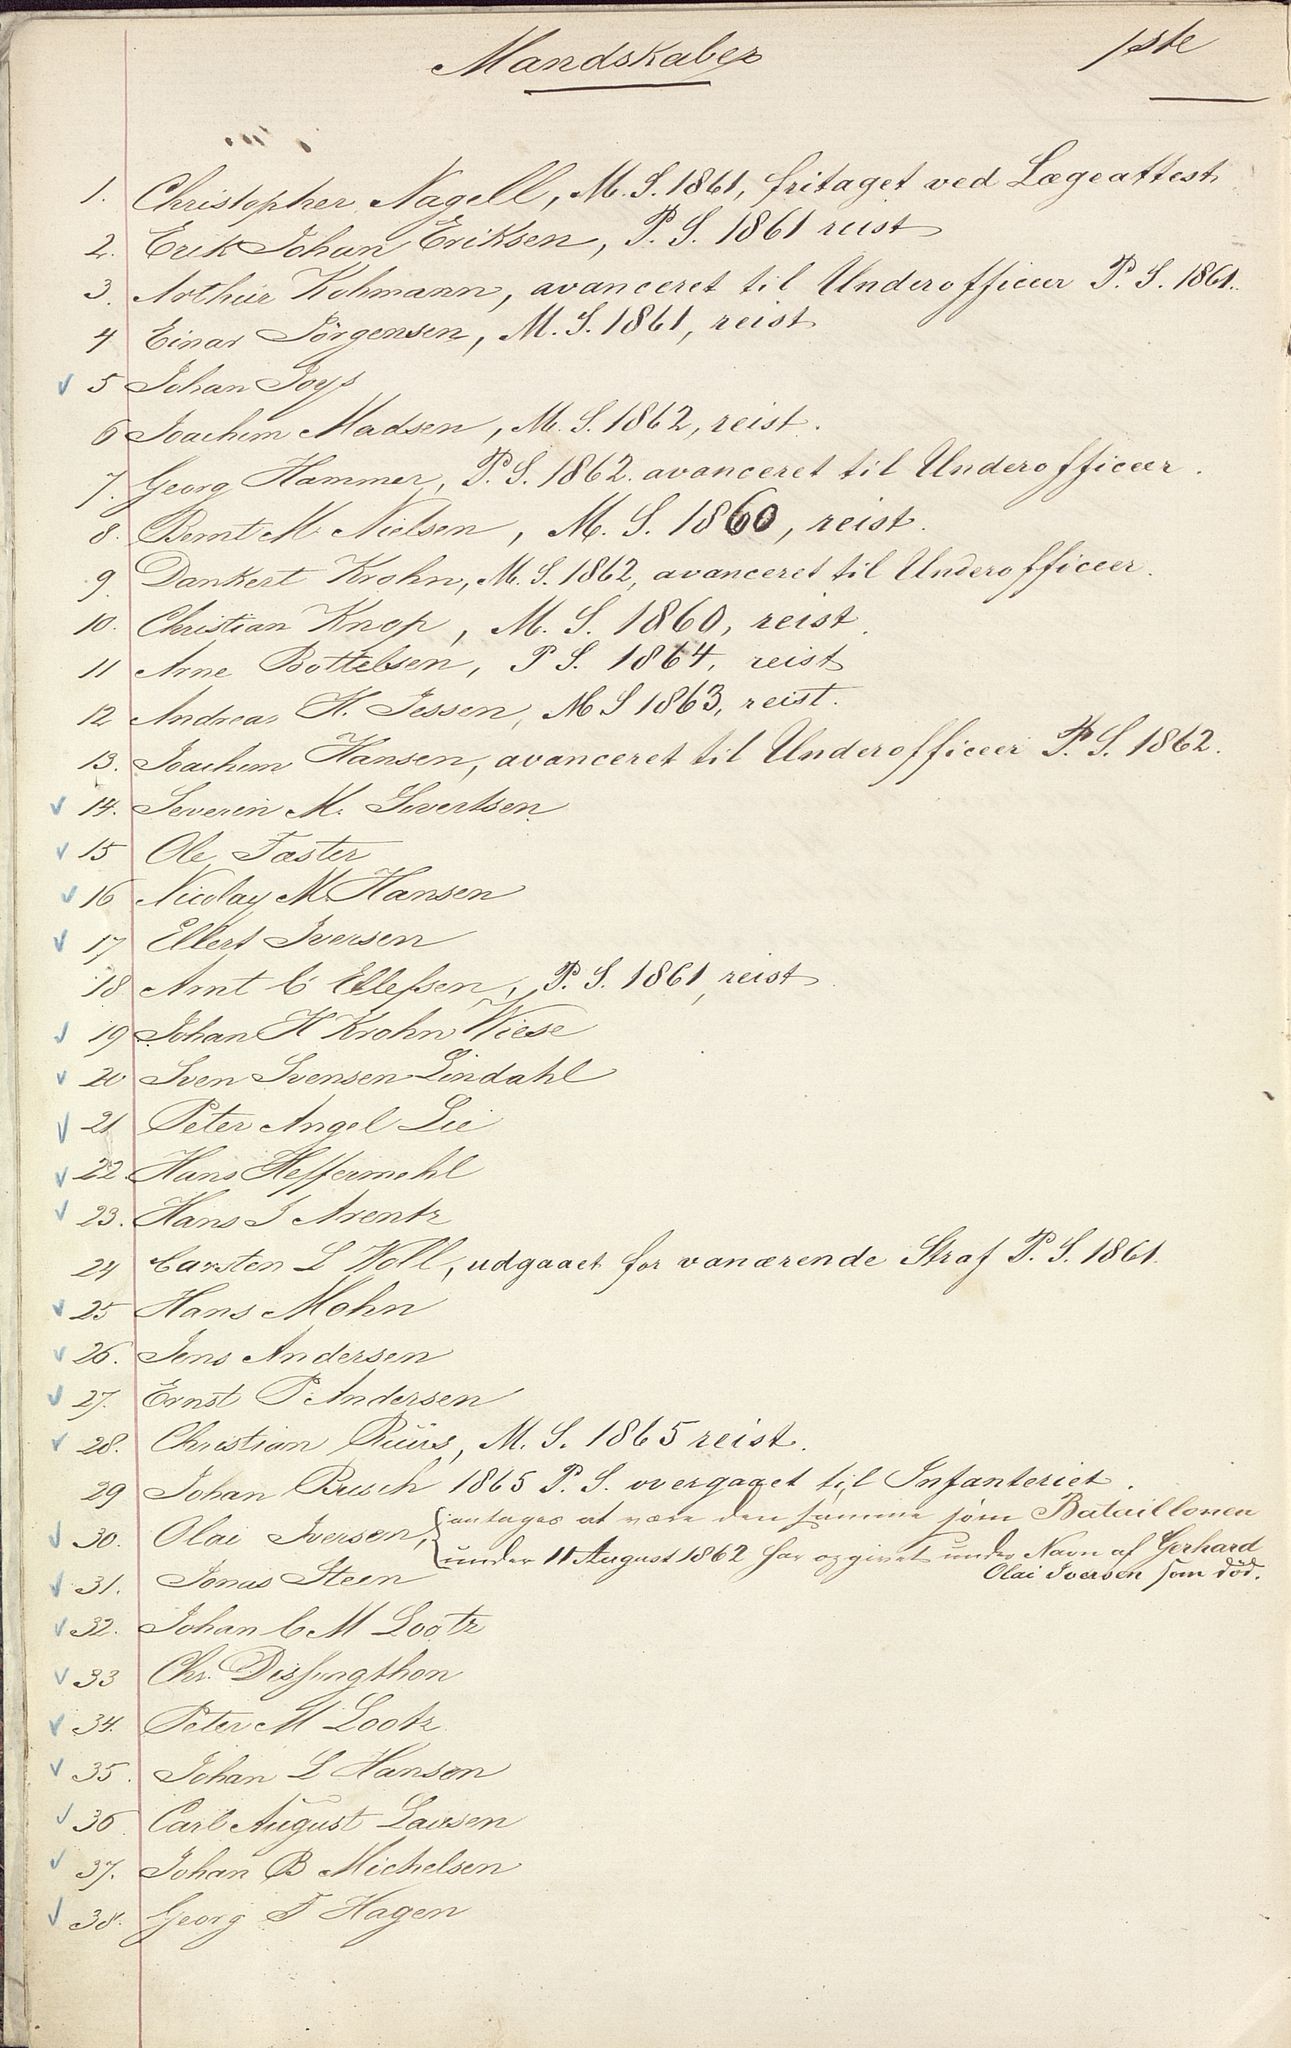 Mandskaber 1ste
1. Christopher Nagell, M. S. 1861, fritaget ved Lægeattest
2. Erik Johan Eriksen, P. S. 1861 reist
3. Arthur Kohmann, avanceret til Underofficeer P. S. 1861.
4 Einar Jörgensen, M. S. 1861, reist
5 Johan Joys
6 Joachim Madsen, M. S. 1862, reist.
7. Georg Hammer, P. S. 1862. avanceret til Underofficeer.
8. Bernt M. Nielsen, M. S. 1860, reist.
9. Dankert Krohn, M. S. 1862, avanceret til Underofficeer.
10. Christian Knop, M. S. 1860, reist.
11 Arne Bottelsen, P S. 1864, reist
12 Andreas H. Jessen, M S 1863, reist.
13. Joachim Hansen, avanceret til Underofficeer P. S. 1862.
14. Severin M. Sivertsen
15 Ole Fæster
16 Nicolay M. Hansen
17 Ellert Iversen
18 Arnt C Ellefsen, P. S. 1861, reist
19 Johan H Krohn Wiese
20 Sven Svensen Lindahl
21 Peter Angel Lie
22 Hans Heffermehl
23. Hans J Arentz
24 Carsten L Woll, udgaaet for vanærende Straf P. S. 1861.
25 Hans Mohn
26. Jens Andersen
27. Ernst P. Andersen
28. Christian Ruus, M. S. 1865 reist.
29 Johan Busch 1865 P. S. overgaaet til Infanteriet.
30. Olai Iversen, antages at være den samme som Bataillonen
under 11 August 1862 har opgivet under Navn af Gerhard
Olai Iversen som död.
31. Jonas Steen
32. Johan C M Lootz
33 Chr. Dissingthon
34. Peter M Lootz
35. Johan L Hansen
36 Carl August Larsen
37. Johan B Michelsen
38. Georg F Hagen